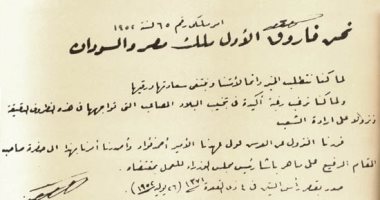 أمر ملكى رقم ٦٥ لسنة ١٩٥٢
نحن فاروق الأول ملك مصر والسودان
لما كنا نتطلب الخير دائما لأمتنا ونبتغى سعادتها ورقيها
ولما كنا نرغب رغبة أكيدة فى تجنيب البلاد المصاعب التى تواجهها فى هذه الظروف الدقيقة
ونزولا على إرادة الشعب
قررنا النزول عن العرش لولى عهدنا الأمير أحمد فؤاد وأصدرنا أمرنا بهذا إلى حضرة صاحب
المقام الرفيع على ماهر باشا رئيس مجلس الوزراء للعمل بمقتضاه
صدر بقصر رأس التين فى ذى القعدة ١٣٧١ (٢٦ يوليه ١٩٥٢)